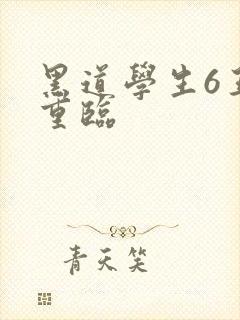 黑道學生6王
重臨
青天笑